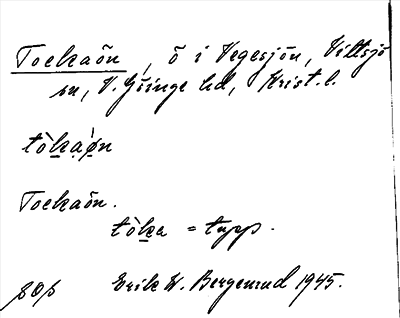 Tockaön, ö i Vegesjön, Vittsjö
sn, V. Göinge hd, Krist. l.
tò̱ka̱ö̀n
Tockaön.
tò̱ka = tupp.
Erik W. Bergenrud 1945.